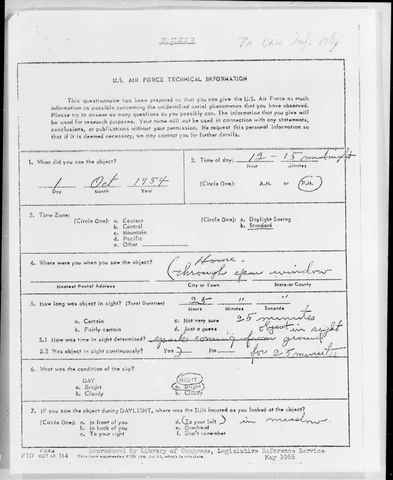 No Case Info only
U.S. AIR FORCE TECHNICAL INFORMATION
This questionnaire has been prepared so that you can give the U.S. Air Force as much
information as possible concerning the unidentified aerial phenomenon that you have observed.
Please try to answer as many questions as you possibly can. The information that you give will
be used for research purposes. Your name will not be used in connection with any statements,
conclusions, or publications without your permission. We request this personal information so
that if it is deemed necessary, we may contact you for further details.
1. When did you see the object?
1 Oct 1954
Day Month Year
2. Time of day: 12 - 15 midnight
Hour Minutes
(Circle One): A.M. or P.M.
3. Time Zone:
(Circle One): a. Eastern
b. Central
c. Mountain
d. Pacific
e. Other
(Circle One): a. Daylight Saving
b. Standard
4. Where were you when you saw the object?
Home
(through open window
Nearest Postal Address City or Town State or County
5. How long was object in sight? (Total Duration) 25 " "
Hours Minutes Seconds
a. Certain c. Not very sure 25 minutes
b. Fairly certain d. Just a guess object in sight
5.1 How was time in sight determined? sparks coming from ground
5.2 Was object in sight continuously? Yes No for 25 minutes
6. What was the condition of the sky?
DAY NIGHT
a. Bright a. Bright
b. Cloudy b. Cloudy
7. IF you saw the object during DAYLIGHT, where was the SUN located as you looked at the object?
(Circle One): a. In front of you d. (To your left) in meadow.
b. In back of you e. Overhead
c. To your right f. Don't remember
FORM
FTD OCT 62 164 This form supersedes FTD 164, Jul 61, which is obsolete.
Reproduced by Library of Congress, Legislative Reference Service
May 1968